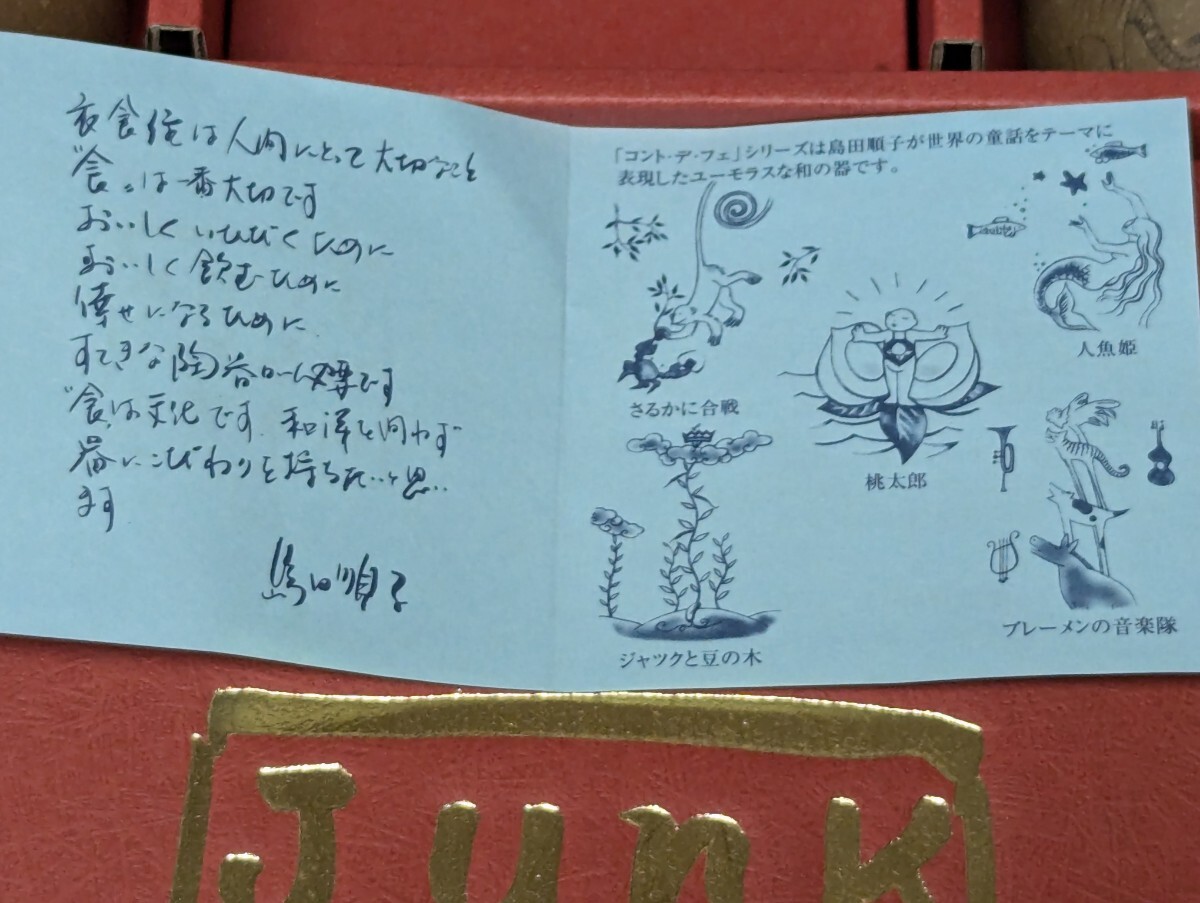 衣食住は人間にとって大切なこと
"食"は一番大切です
おいしくいただくために
おいしく飲むために
倖せになるために
すてきな陶器が必要です
"食"は文化です、和洋を問わず
器にこだわりを持ちたいと思い
ます
島田順子
「コント・デ・フェ」シリーズは島田順子が世界の童話をテーマに
表現したユーモラスな和の器です。
人魚姫
さるかに合戦
桃太郎
ブレーメンの音楽隊
ジャックと豆の木
Junk